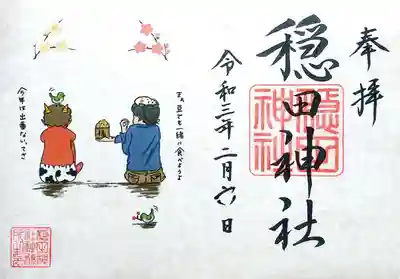 奉拝
穏田神社
穏田
神社
令和三年二月六日
まぁ豆でも一緒に食べようよ
今年は出番ないってさ